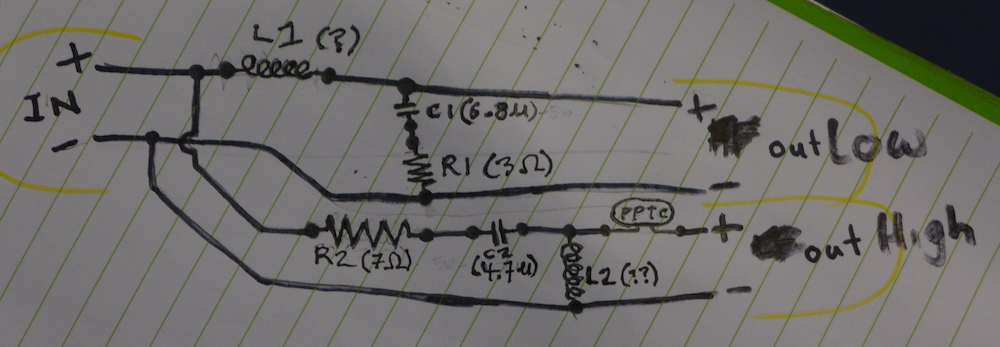 L1 (?)
+
IN
-
C1 (6.8µ)
R1 (3Ω)
+
out Low
-
R2 (7Ω)
C2
(4.7µ)
L2 (??)
PPTC
+
out High
-